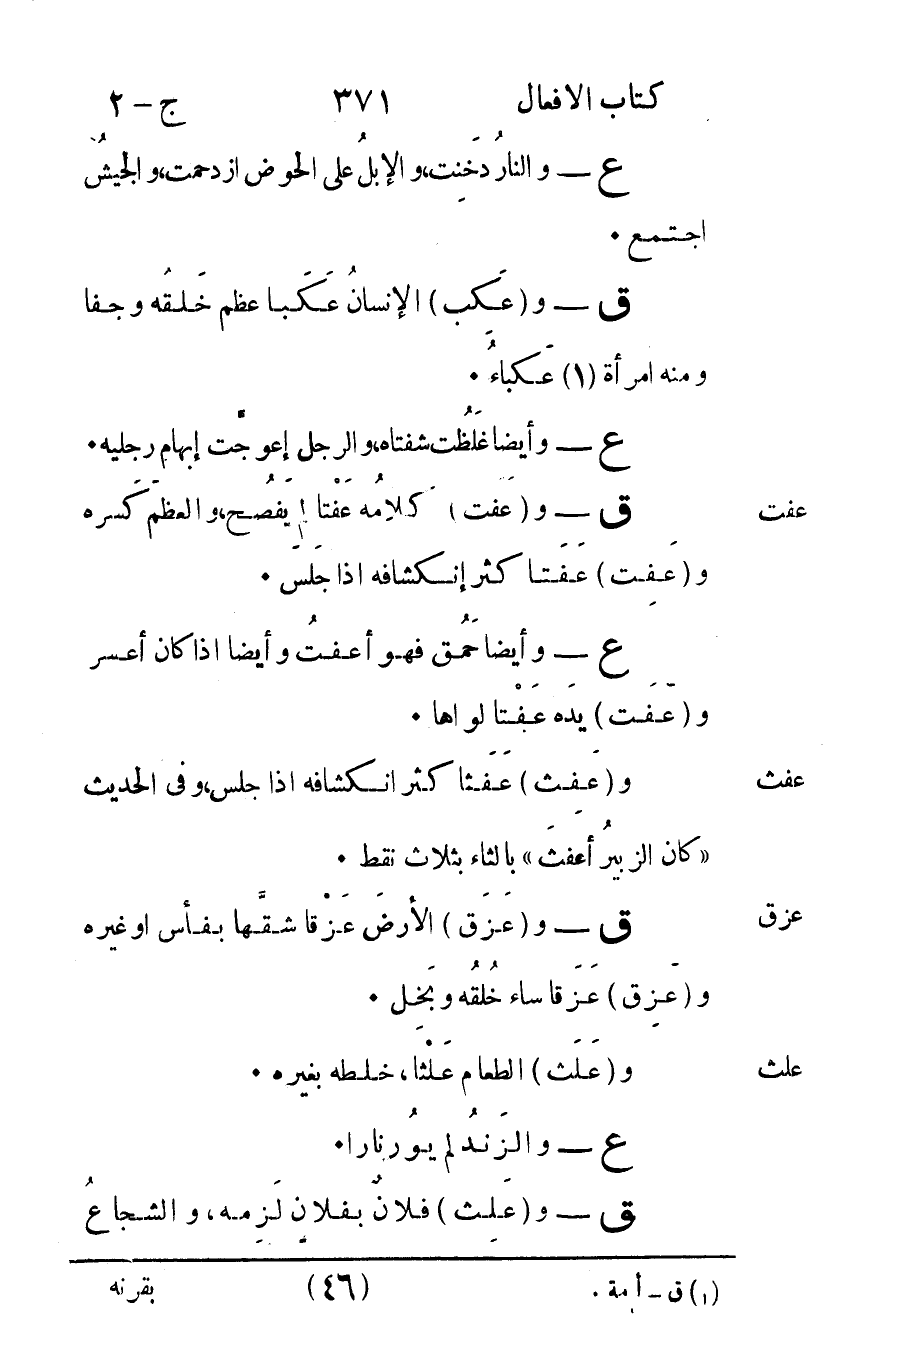 كتاب الافعال ٣٧١ ج – ٢
ع — و النارُ دَخِنت، و الإبلُ على الحوض ازدحمت، و الجيشُ
اجتمع ٠
ق — و (عَكِب) الإنسانُ عَكَبا عظم خَلقُه و جفا
و منه امرأة (١) عَكباءُ ٠
ع — و أيضا غَلُظت شفتاه، و الرجل إعوجّت إبهام رجليه ٠
عفت ق — و (عفَت) كلامُه عَفْتا لم يَفصُح، و العظمَ كَسره
و (عَفِت) عَفَتا كثر إنكشافه اذا جَلَسَ ٠
ع — و أيضا حَمُق فهو أعفتُ و أيضا اذا كان أعسر
و (عَفَت) يدَه عَفْتا لواها ٠
عفث و (عَفِث) عَفَثا كثر انكشافه اذا جلس، و فى الحديث
«كان الزبيرُ أعفثَ» بالثاء بثلاث نقط ٠
عزق ق — و (عَزَق) الأرضَ عَزْقا شقَّها بفأس او غيره
و (عَزِق) عَزَقا ساء خُلُقُه و بَخِل ٠
علث و (عَلَث) الطعام عَلْثا، خلطه بغيره ٠
ع — و الزَندُ لم يُور نارا ٠
ق — و (عَلِث) فلانٌ بفلانٍ لَزِمه، و الشجاعُ
(١) ق – أمة . (٤٦) بقرنه